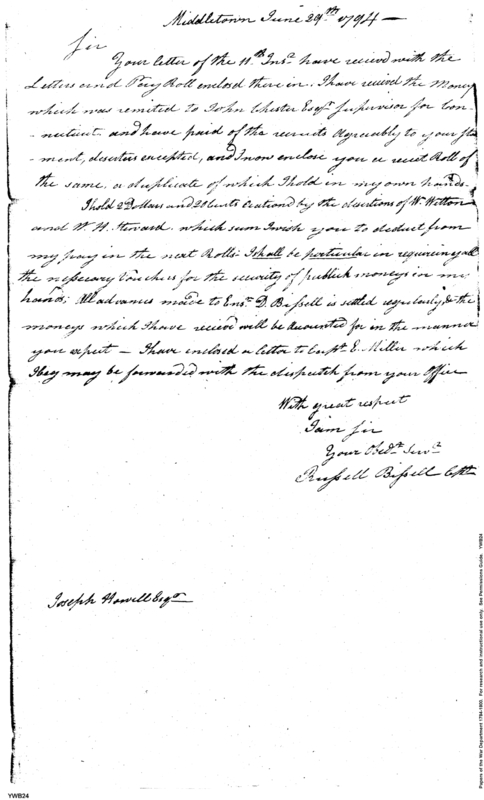 Middletown June 29th 1794 —
Sir
Your letter of the 11th Inst. have recievd with the
Letters and Pay Roll enclosed there in. I have recievd the Money
which was remited to John Chester Esqr. Supervisor for Con-
-necticut and have paid of the recruits Agreably to your
-ment, deserters excepted, and I now enclose you a reciet Roll of
the same, a duplicate of which I hold in my own hands.
I hold 2 Dollars and 20 Cents by the desertions of Wm. Witton
and W. H. Steward. which sum I wish you to deduct from
my pay in the next Rolls. I shall be particular in requireing all
the nessecary Vouchers for the security of publick moneys in my
hands; All advances made to Ensn. D. Bissell is settled regulerly & the
moneys which I have recievd will be Accounted for in the manner
you expect — I have enclosed a letter to Capt. E. Miller which
I beg may be forwarded with the dispatch from your Office
With great respect
I am Sir
Your Obedt. Servt.
Russell Bissell Capt.
Joseph Howell Esqr
YWB24
Papers of the War Department 1784-1800. For research and instructional use only. See Permissions Guide. YWB24